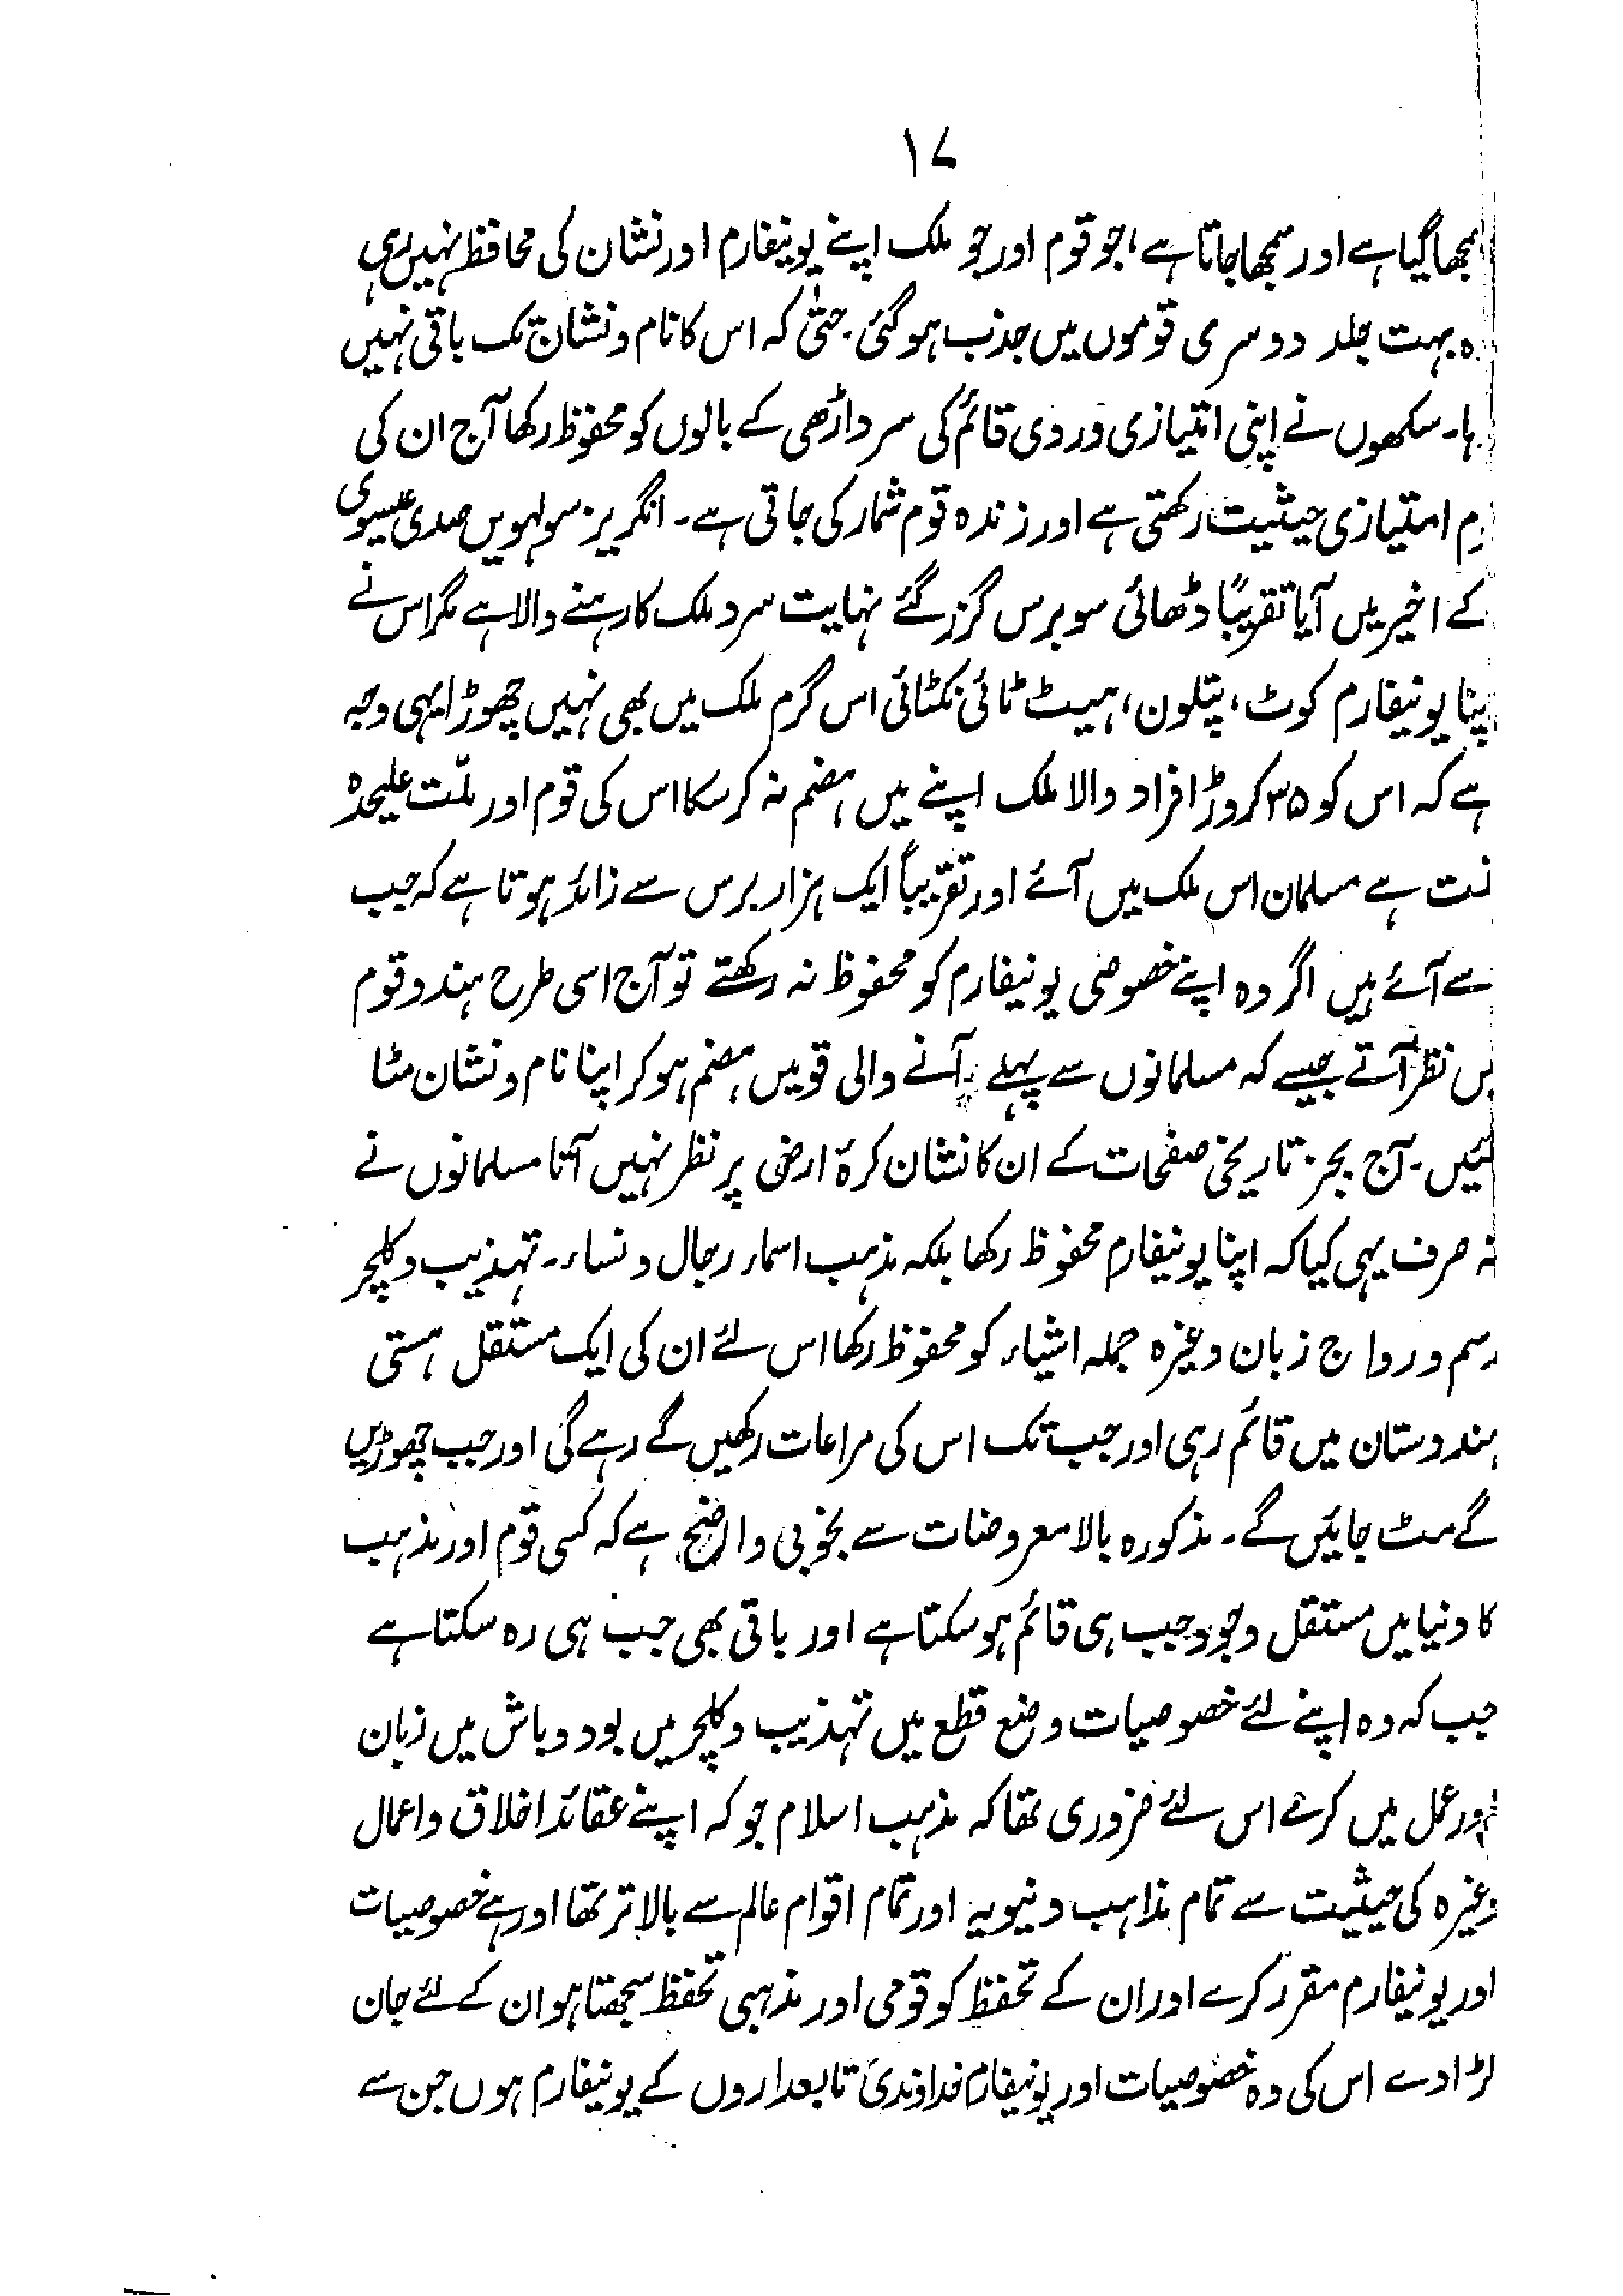 ۱۷
سمجھا گیا ہے اور سمجھا جاتا ہے، جو قوم اور جو ملک اپنے یونیفارم اور نشان کی محافظ نہیں رہی
وہ بہت جلد دوسری قوموں میں جذب ہو گئی۔ حتیٰ کہ اس کا نام و نشان تک باقی نہیں
رہا۔ سکھوں نے اپنی امتیازی وردی قائم کی سر داڑھی کے بالوں کو محفوظ رکھا آج ان کی
امتیازی حیثیت رکھتی ہے اور زندہ قوم شمار کی جاتی ہے۔ انگریز سولہویں صدی عیسوی
کے اخیر میں آیا تقریبًا ڈھائی سو برس گزر گئے نہایت سرد ملک کا رہنے والا ہے مگر اس نے
اپنا یونیفارم کوٹ، پتلون، ہیٹ ٹائی نکٹائی اس گرم ملک میں بھی نہیں چھوڑا یہی وجہ
ہے کہ اس کو ۳۵ کروڑ افراد والا ملک اپنے میں ہضم نہ کر سکا اس کی قوم اور ملّت علیحدہ
ہے مسلمان اس ملک میں آئے اور تقریباً ایک ہزار برس سے زائد ہوتا ہے کہ جب
سے آئے ہیں اگر وہ اپنے خصوصی یونیفارم کو محفوظ نہ رکھتے تو آج اسی طرح ہندو قوم
میں نظر آتے جیسے کہ مسلمانوں سے پہلے آنے والی قومیں ہضم ہو کر اپنا نام و نشان مٹا
گئیں۔ آج بجز تاریخی صفحات کے ان کا نشان کرۂ ارضی پر نظر نہیں آتا مسلمانوں نے
نہ صرف یہی کیا کہ اپنا یونیفارم محفوظ رکھا بلکہ مذہب اسماء رجال و نساء۔ تہذیب و کلچر
رسم و رواج زبان وغیرہ جملہ اشیاء کو محفوظ رکھا اس لئے ان کی ایک مستقل ہستی
ہندوستان میں قائم رہی اور جب تک اس کی مراعات رکھیں گے رہے گی اور جب چھوڑیں
گے مٹ جائیں گے۔ مذکورہ بالا معروضات سے بخوبی واضح ہے کہ کسی قوم اور مذہب
کا دنیا میں مستقل وجود جب ہی قائم ہو سکتا ہے اور باقی بھی جب ہی رہ سکتا ہے
جب کہ وہ اپنے لئے خصوصیات وضع قطع میں تہذیب و کلچر میں بود و باش میں زبان
اور عمل میں کرے اس لئے ضروری تھا کہ مذہب اسلام جو کہ اپنے عقائد اخلاق و اعمال
وغیرہ کی حیثیت سے تمام مذاہب دنیویہ اور تمام اقوام عالم سے بالا تر تھا اور ہے خصوصیات
اور یونیفارم مقرر کرے اور ان کے تحفظ کو قومی اور مذہبی تحفظ سمجھتا ہو ان کے لئے جان
لڑا دے اس کی وہ خصوصیات اور یونیفارم خداوندی تابعداروں کے یونیفارم ہوں جن سے